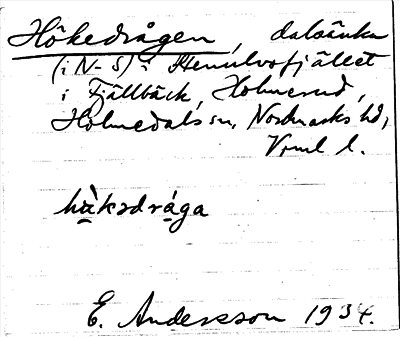 Hökedrågen, dalsänka
(i N-S) i Stenulvsfjället
i Fjällbäck, Holmerud,
Holmedals sn, Nordmarks hd,
Vrml l.
hàkədrága
E. Andersson 1934.